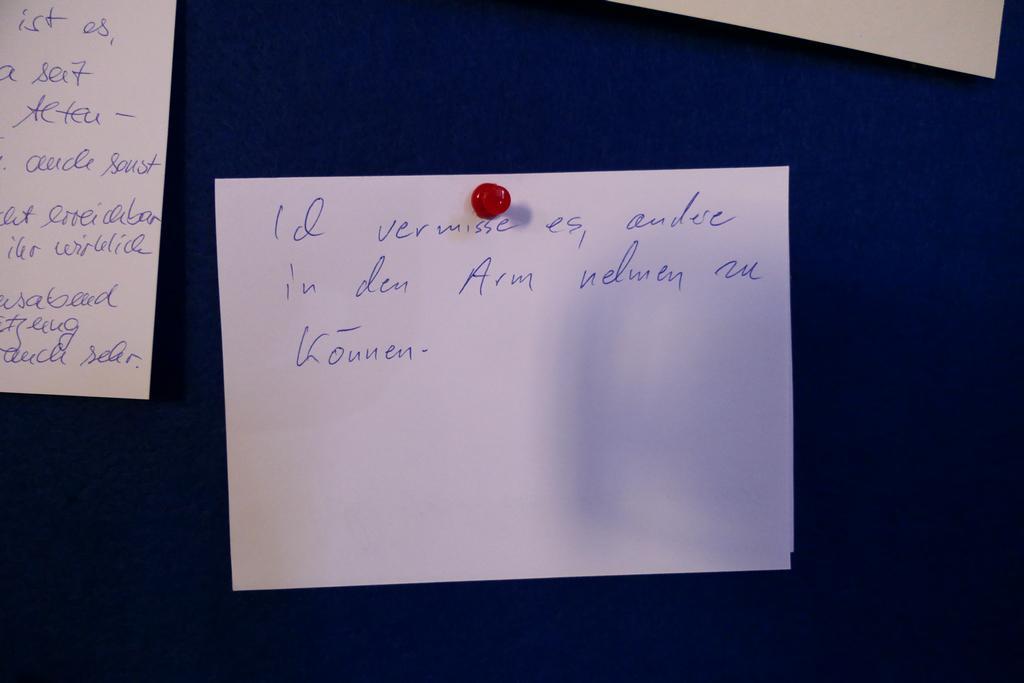 ist es,
a seit
Alten-
. auch sonst
cht erreichbar
ihr wirklich
nsabend
tzung
auch sehr.
Ich vermisse es, andere
in den Arm nehmen zu
können.